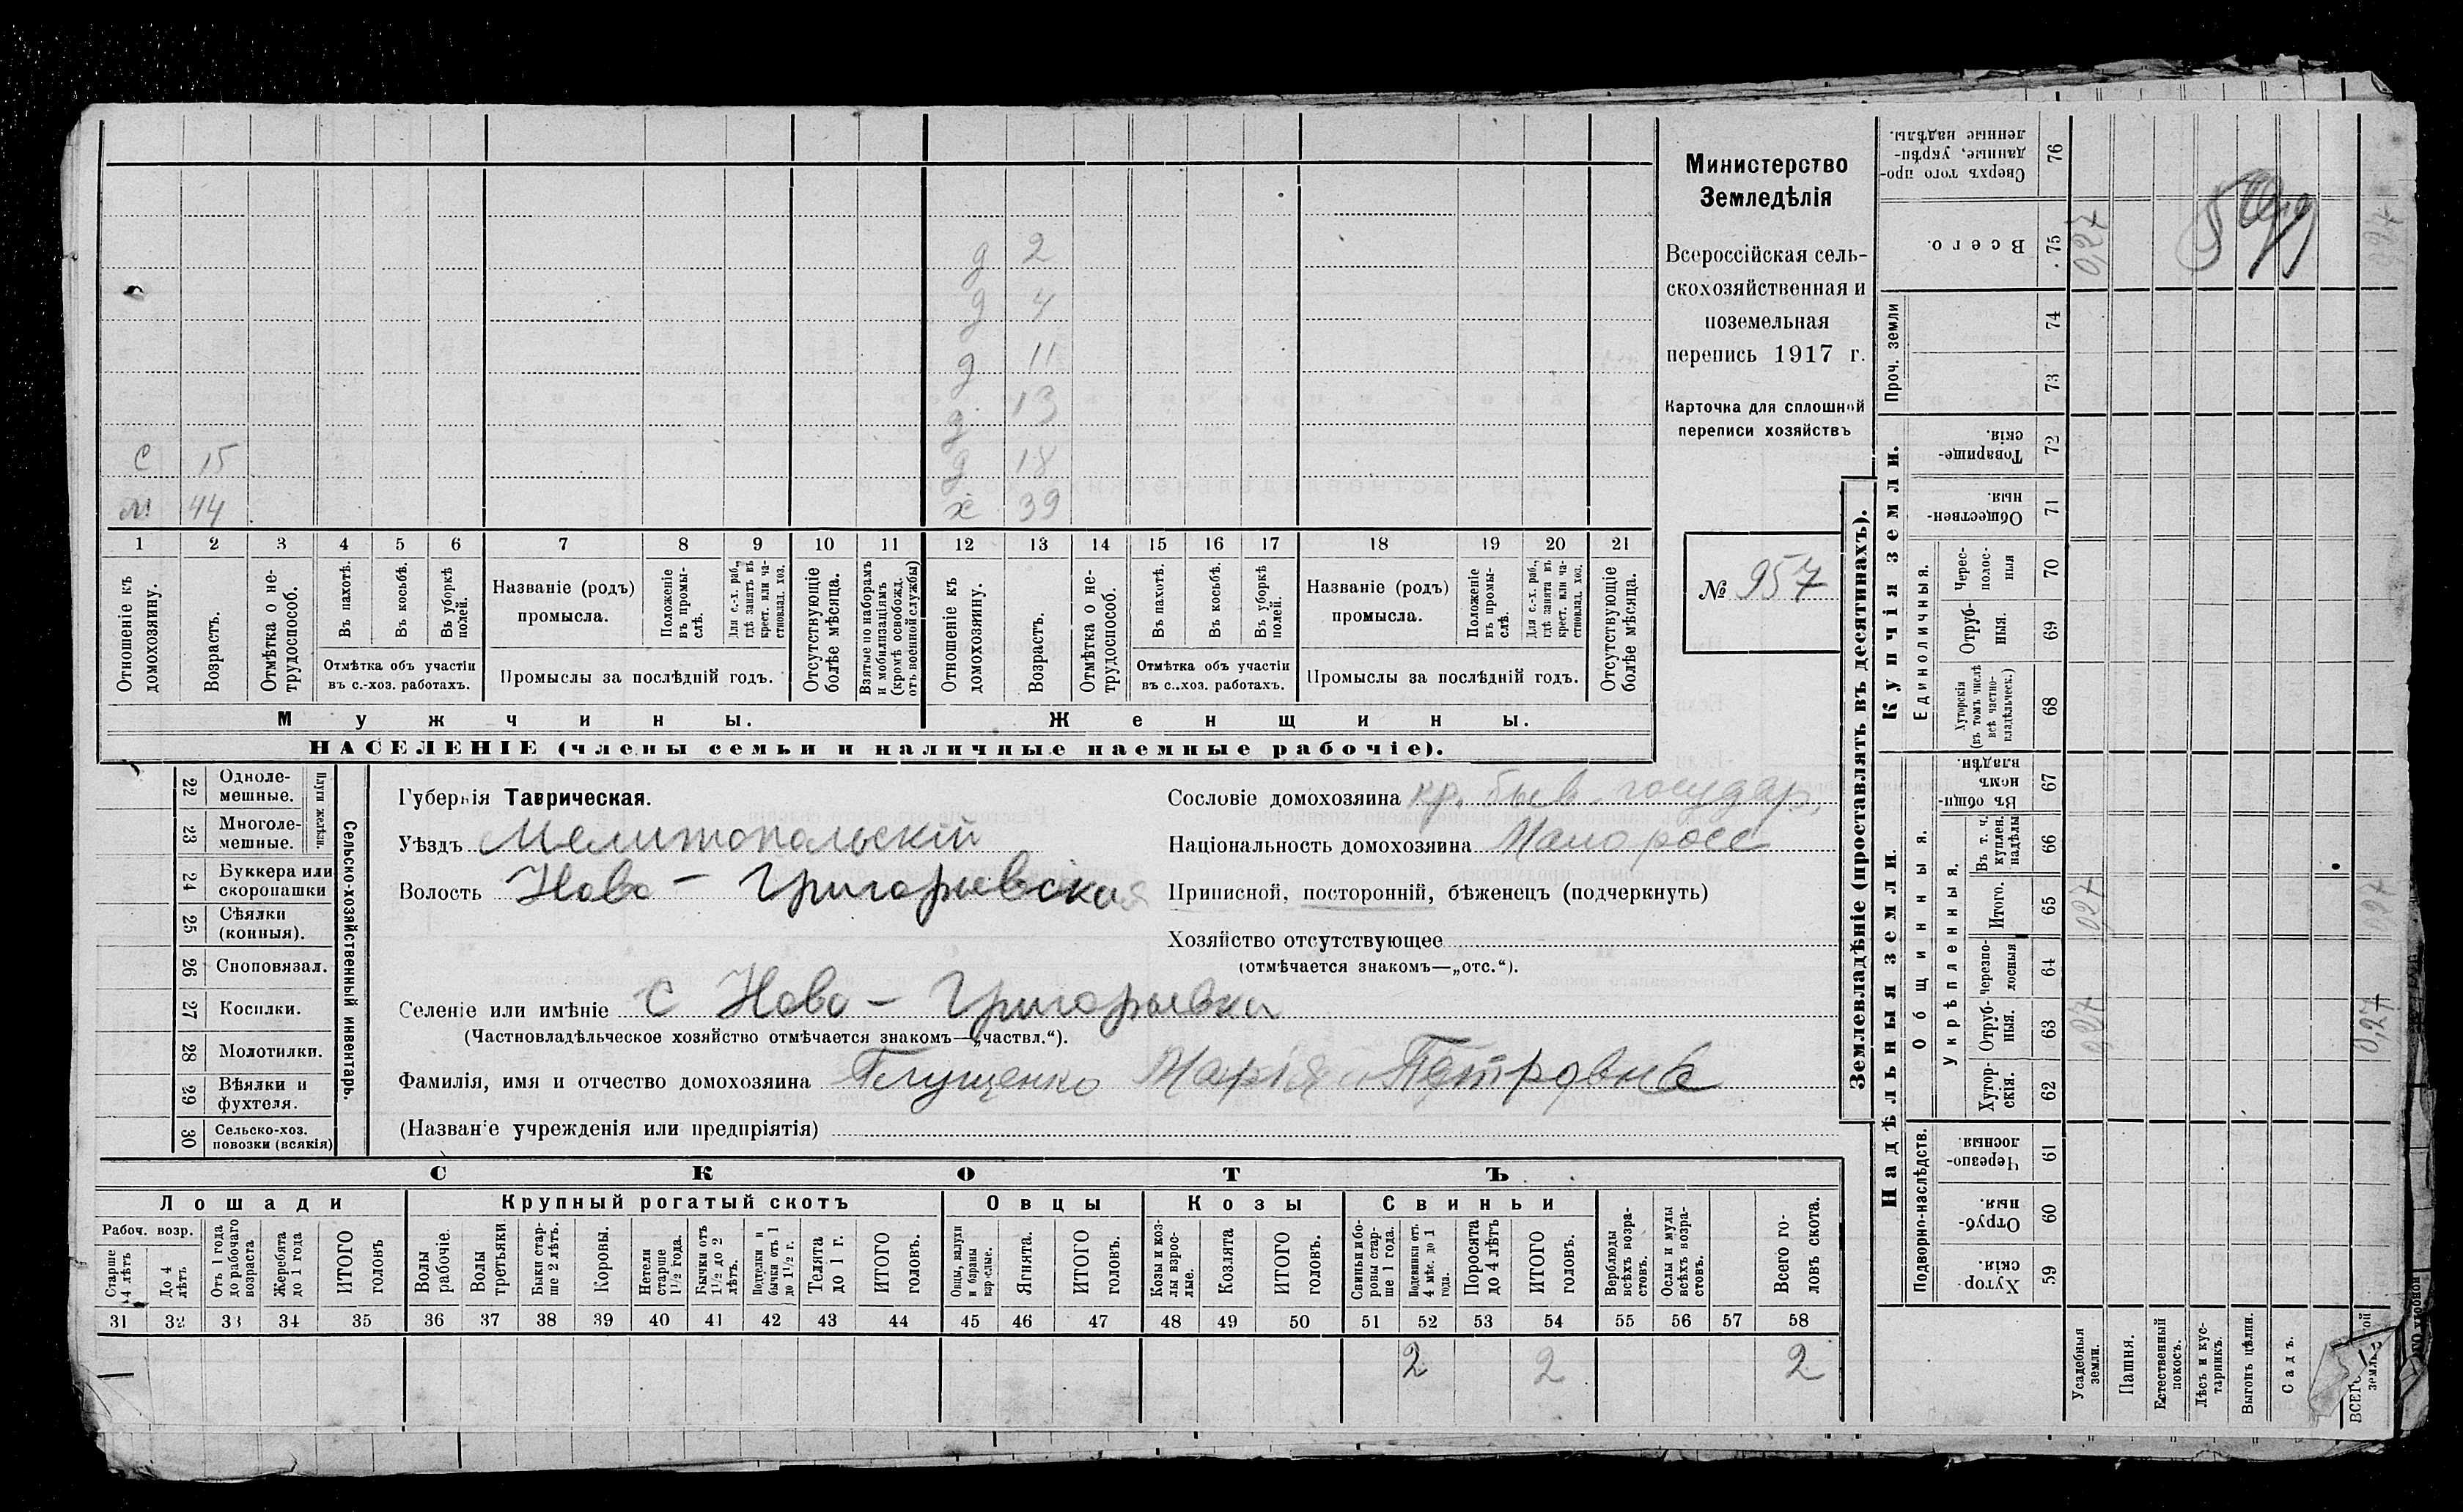 Министерство
Земледѣлія
Всероссійская сель-
скохозяйственная и
поземельная
перепись 1917 г.
Карточка для сплошной
переписи хозяйствъ
№ 957
д 2
д 4
д 11
д 13
с 15 д 18
м 44 х 39
1 2 3 4 5 6 7 8 9 10 11 12 13 14 15 16 17 18 19 20 21
Отношеніе къ домохозяину.
Возрастъ.
Отмѣтка о не-трудоспособ.
Въ пахотѣ.
Въ косьбѣ.
Въ уборкѣ полей.
Отмѣтка объ участіи
въ с.-хоз. работахъ.
Названіе (родъ)
промысла.
Положеніе въ промы-слѣ.
Для с.-х. раб., гдѣ занятъ въ крест. или ча-стновлад. хоз.
Промыслы за послѣдній годъ.
Отсутствующіе болѣе мѣсяца.
Взятые по наборамъ и мобилизаціямъ (кромѣ освобожд. отъ военной службы)
Отношеніе къ домохозяину.
Возрастъ.
Отмѣтка о не-трудоспособ.
Въ пахотѣ.
Въ косьбѣ.
Въ уборкѣ полей.
Отмѣтка объ участіи
въ с.-хоз. работахъ.
Названіе (родъ)
промысла.
Положеніе въ промы-слѣ.
Для с.-х. раб., гдѣ занята въ крест. или ча-стновлад. хоз.
Промыслы за послѣдній годъ.
Отсутствующіе болѣе мѣсяца.
Мужчины. Женщины.
НАСЕЛЕНІЕ (члены семьи и наличные наемные рабочіе).
Сельско-хозяйственный инвентарь.
Плуги желѣзн.
22 Одноле-мешные.
23 Многоле-мешные.
24 Буккера или скоропашки
25 Сѣялки (конныя).
26 Сноповязал.
27 Косилки.
28 Молотилки.
29 Вѣялки и фухтеля.
30 Сельско-хоз. повозки (всякія)
Губернія Таврическая.
Уѣздъ Мелитопольскій
Волость Ново - Григорьевская
Селеніе или имѣніе с Ново - Григорьевка
(Частновладѣльческое хозяйство отмѣчается знакомъ—„частвл.“).
Фамилія, имя и отчество домохозяина Глущенко Марія Петровна
(Названіе учрежденія или предпріятія)
Сословіе домохозяина кр. быв. государ.
Національность домохозяина Малоросс
Приписной, посторонній, бѣженецъ (подчеркнуть)
Хозяйство отсутствующее
(отмѣчается знакомъ—„отс.“).
СКОТЪ
Лошади Крупный рогатый скотъ Овцы Козы Свиньи
Рабоч. возр.
Старше 4 лѣтъ
До 4 лѣтъ
Отъ 1 года до рабочаго возраста
Жеребята до 1 года
ИТОГО головъ
Волы рабочіе.
Волы третьяки
Быки стар-ше 2 лѣтъ.
Коровы.
Нетели старше 1½ года.
Бычки отъ 1½ до 2 лѣтъ.
Подтелки и бычки отъ 1 до 1½ г.
Телята до 1 г.
ИТОГО головъ.
Овцы, валухи и бараны взрослые.
Ягнята.
ИТОГО головъ.
Козы и коз-лы взрос-лые.
Козлята
ИТОГО головъ.
Свиньи и бо-ровы стар-ше 1 года.
Подсвинки отъ 4 мѣс. до 1 года.
Поросята до 4 лѣтъ
ИТОГО головъ.
Верблюды всѣхъ возра-стовъ.
Ослы и мулы всѣхъ возра-стовъ.
Всего го-ловъ скота.
31 32 33 34 35 36 37 38 39 40 41 42 43 44 45 46 47 48 49 50 51 52 53 54 55 56 57 58
2 2 2
Землевладѣніе (проставлять въ десятинахъ).
Сверхъ того про-данные, укрѣп-ленные надѣлы. 76
Всего. 75 0,27
Проч. земли 74
73
Купчія земли.
Товарище-скія. 72
Обществен-ныя. 71
Единоличныя.
Черес-полос-ныя 70
Отруб-ныя. 69
Хуторскія (въ томъ числѣ всѣ частно-владѣльческ.) 68
Надѣльныя земли.
Общинныя.
Въ общи-номъ владѣн. 67
Укрѣпленныя.
Въ т. ч. куплен. надѣлы 66
Итого. 65 0,27 0,27
Черезпо-лосныя 64
Отруб-ныя. 63 0,27 0,27
Хутор-скія. 62
Подворно-наслѣдств.
Черезпо-лосныя 61
Отруб-ныя. 60
Хутор-скія. 59
Усадебныя земли.
Пашня.
Естественный покосъ.
Лѣсъ и кус-тарникъ.
Выгонъ цѣлин.
Садъ.